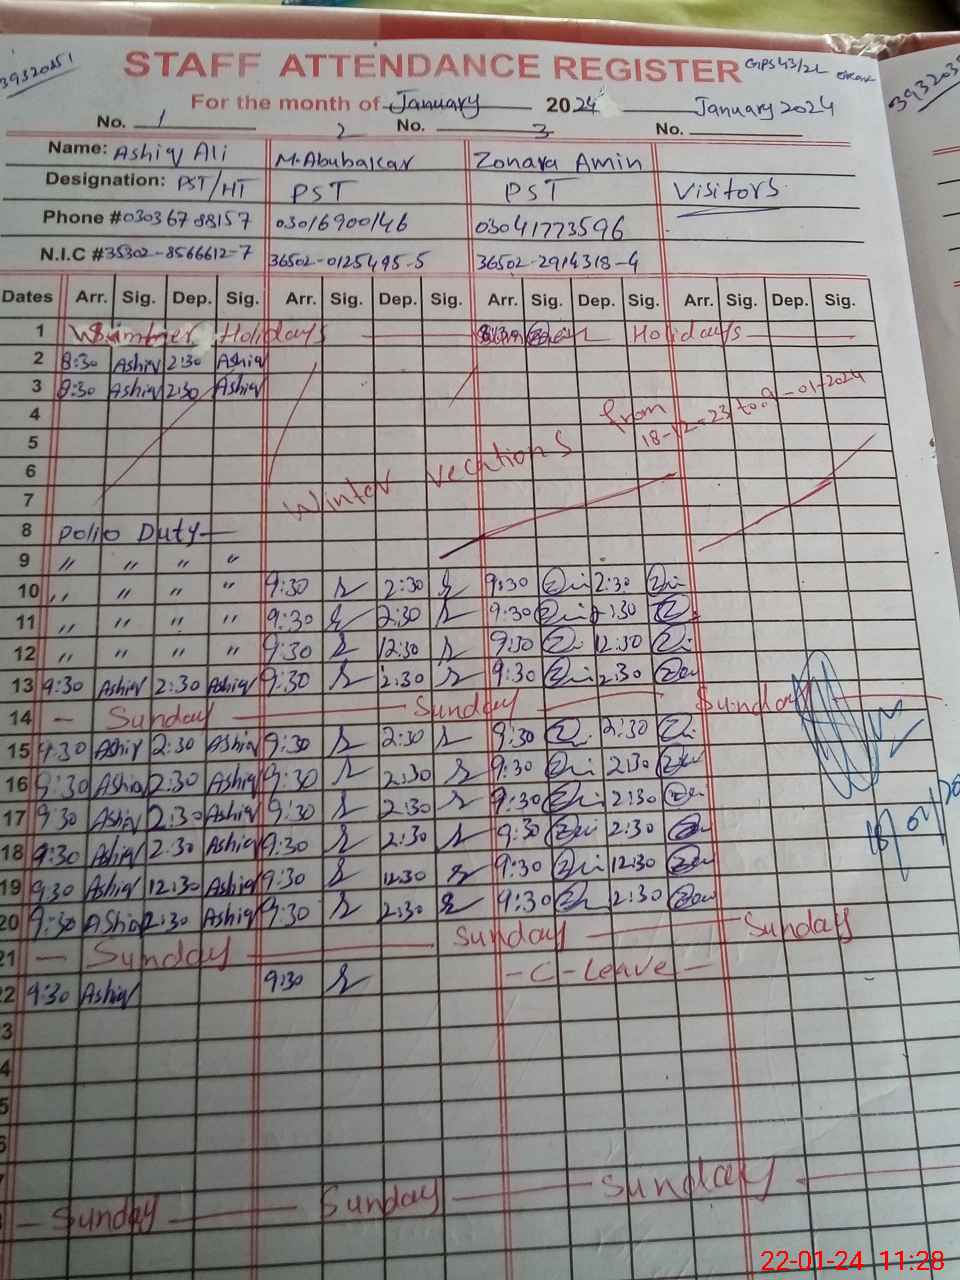 39320251
STAFF ATTENDANCE REGISTER GPS 43/2L
For the month of January 2024 January 2024
No. 1 No. 2 3 No.
Name: Ashiq Ali M.Abubakar Zonara Amin
Designation: PST/HT PST PST Visitors
Phone #03036788157 03016900146 03041773596
N.I.C #35302-8566612-7 36502-0125495-5 36502-2914318-4
Dates Arr. Sig. Dep. Sig. Arr. Sig. Dep. Sig. Arr. Sig. Dep. Sig. Arr. Sig. Dep. Sig.
1 Holidays Holidays
2 8:30 Ashiq 2:30 Ashiq
3 8:30 Ashiq 2:30 Ashiq
4 from 18-12-23 to 9-01-2024
5
6 Winter Vecations
7
8 Polio Duty
9 " " " "
10 " " " " 9:30 2:30 9:30 2:30
11 " " " " 9:30 2:30 9:30 2:30
12 " " " " 9:30 12:30 9:30 12:30
13 9:30 Ashiq 2:30 Ashiq 9:30 2:30 9:30 2:30
14 - Sunday Sunday Sunday
15 9:30 Ashiq 2:30 Ashiq 9:30 2:30 9:30 2:30
16 9:30 Ashiq 2:30 Ashiq 9:30 2:30 9:30 2:30
17 9:30 Ashiq 2:30 Ashiq 9:30 2:30 9:30 2:30
18 9:30 Ashiq 2:30 Ashiq 9:30 2:30 9:30 2:30
19 9:30 Ashiq 12:30 Ashiq 9:30 12:30 9:30 12:30
20 9:30 AShiq 2:30 Ashiq 9:30 2:30 9:30 2:30
21 - Sunday Sunday Sunday
22 9:30 Ashiq 9:30 -C-Leave-
3
4
5
6
- Sunday Sunday Sunday
22-01-24 11:28